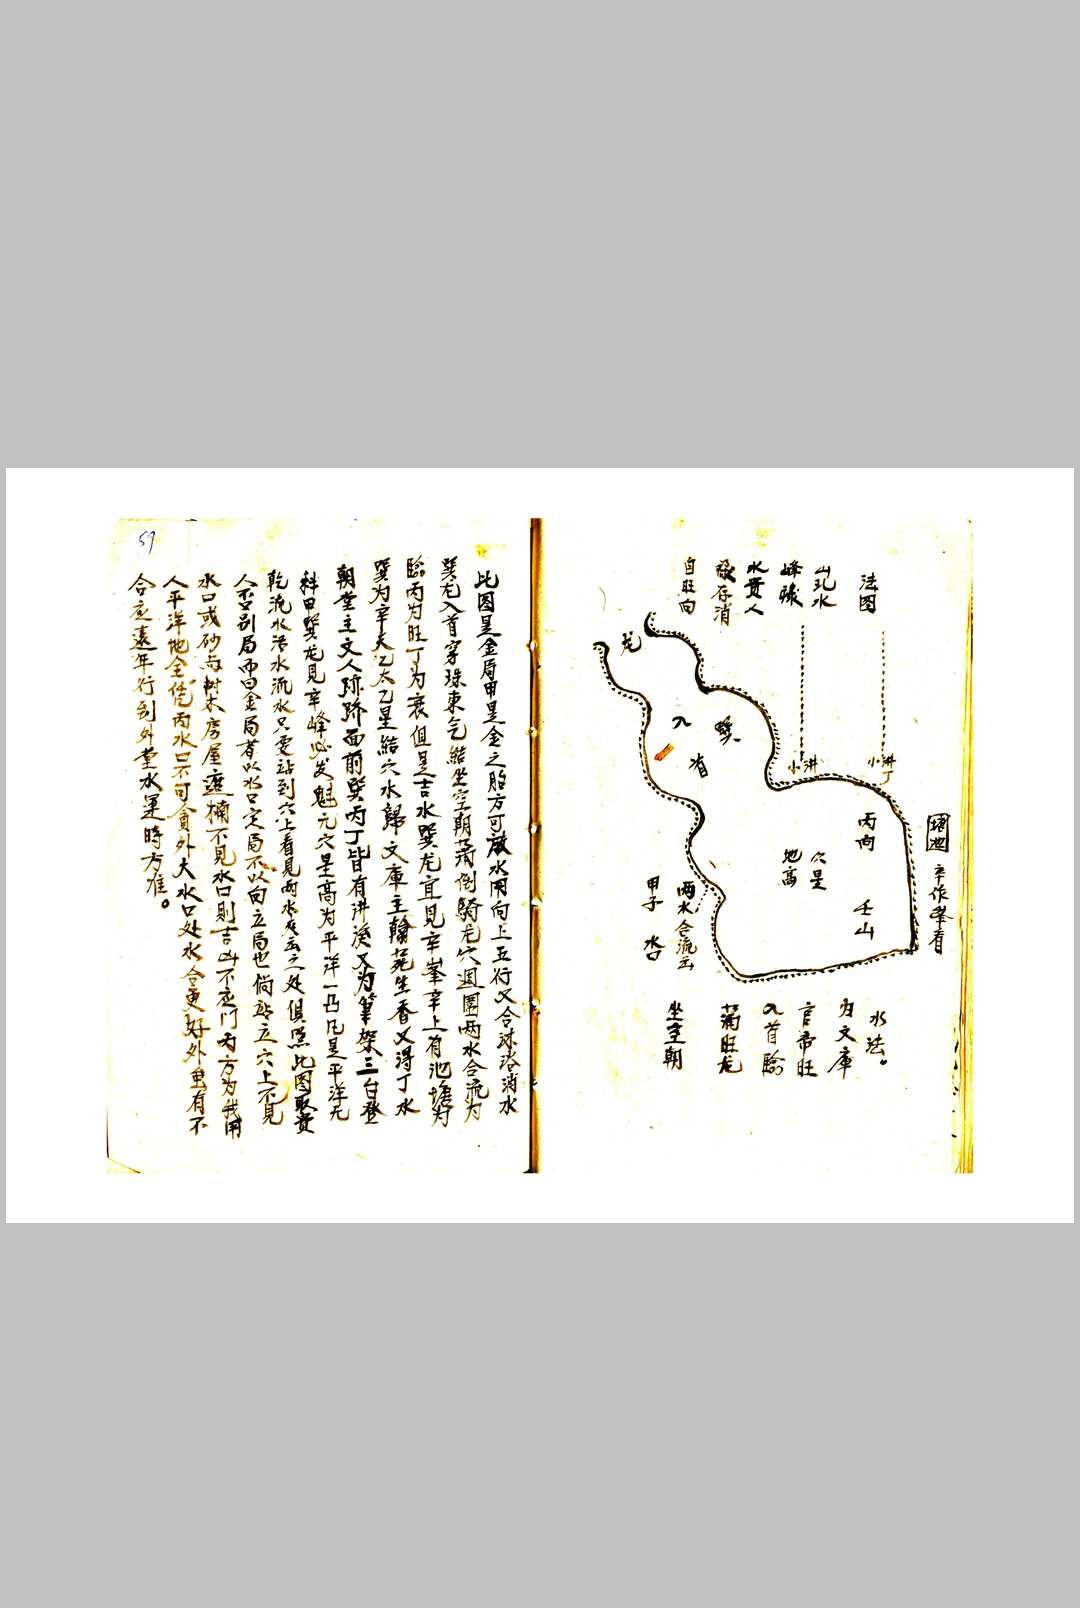 法图
山乳水
峰碌
水贵人
禄存消
自旺向
龙
入
首
巽
小洪
小洪
丁
塘池
辛作峯看
丙向
壬山
穴是
地高
两水合流出
甲子
水口
水法。
为文库
官帝旺
入首臨
蒲旺龙
坐空朝
59
此图是金局甲是金之胎方可放水用向上五行又合沐浴消水
巽龙入首穿珠束乞結坐空朝蒲倒騎龙穴週圍两水合流为
臨丙为旺丁为衰俱是吉水巽龙宜見辛峯辛上有池塘为
巽为辛天乙太乙星結穴水歸文庫主翰苑生香又得丁水
朝堂主文人跡跻面前巽丙丁皆有洪溪又为筆架三台登
科甲巽龙見辛峰必发魁元穴是高为平洋一凸凡是平洋无
乾流水活水流水只要站到穴上看見两水交出之处俱照此图取貴
人不曰别局而曰金局者以水口定局不以向立局也倘站立穴上不見
水口或砂与树木房屋遮楠不見水口則吉凶不应门丙方为我用
人平洋地全凭内水口不可貪外大水口处水合更好外里有不
合应遠年行到外堂水運時方准。